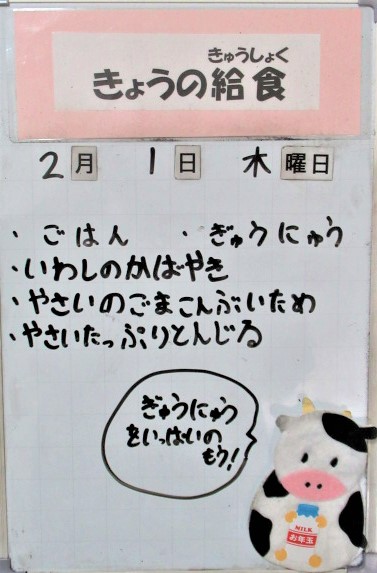 きゅうしょく
きょうの給食
2月 1日 木曜日
・ごはん ・ぎゅうにゅう
・いわしのかばやき
・やさいのごまこんぶいため
・やさいたっぷりとんじる
ぎゅうにゅう
をいっぱいの
もう!
MILK
お年玉